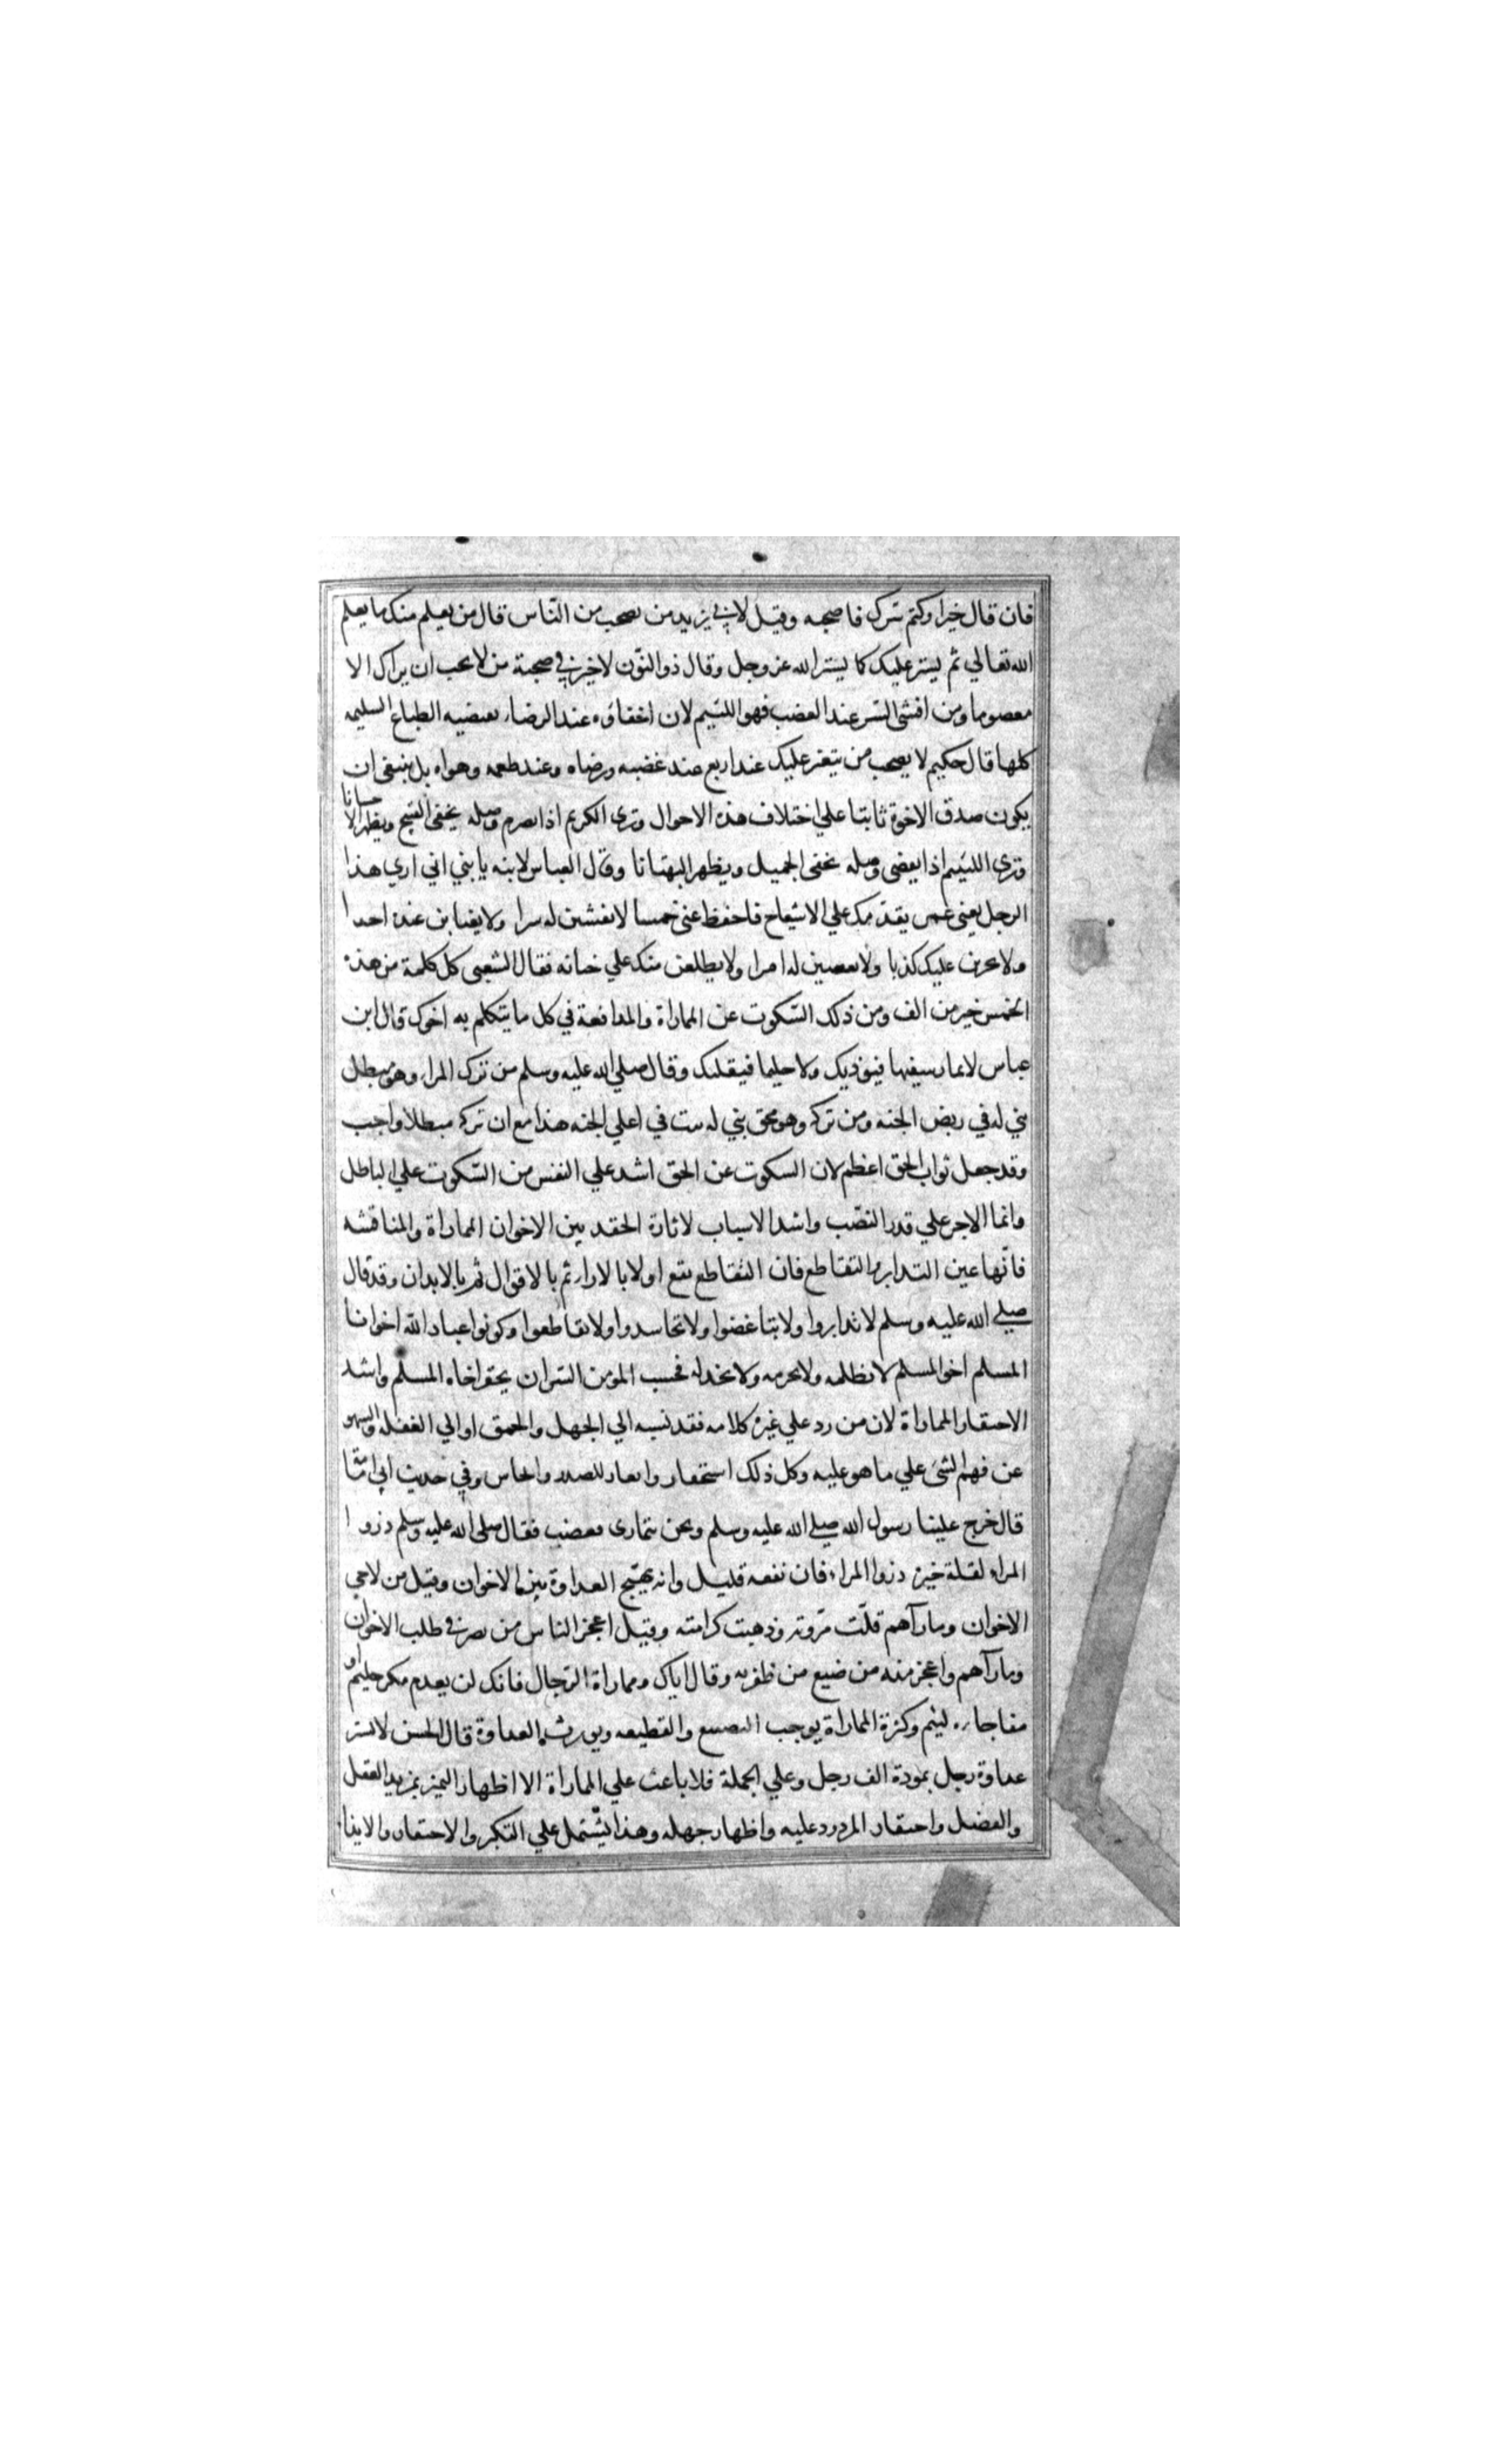 فان قال خيرا وكتم سرك فاصحبه وقيل لابي يزيد من تصحب من الناس قال من يعلم منك ما يعلم
الله تعالي ثم يستر عليك كما يستر الله عز وجل وقال ذو النون لا خير في صحبة من لا يحب ان يراك الا
معصوما ومن افشى السر عند الغضب فهو اللئيم لان اخفاؤه عند الرضا تقتضيه الطباع السليمه
كلها قال حكيم لا تصحب من يتغير عليك عند اربع عند غضبه ورضاه وعند طمعه وهواه بل ينبغي ان
يكون صدق الاخوة ثابتا علي اختلاف هذه الاحوال وترى الكريم اذا تصرم وصله يخفى القبيح ويظهر الاحسانا
وترى اللئيم اذا يقضى وصله يخفى الجميل ويظهر البهتانا وقال العباس لابنه يا بني اني اري هذا
الرجل يعنى عمر يقدمك علي الاشياخ فاحفظ عنى خمسا لا تفشين له سرا ولا يغتابن عنده احدا
ولا يجرين عليك كذبا ولا تعصين له امرا ولا يطلعن منك علي خيانه فقال الشعبى كل كلمة من هذه
الخمس خير من الف ومن ذلك السكوت عن المماراة والمدافعة في كل ما يتكلم به اخوك قال ابن
عباس لا تمار سفيها فيوذيك ولا حليما فيقليك وقال صلي الله عليه وسلم من ترك المراء وهو مبطل
بني له في ربض الجنه ومن تركه وهو محق بني له بيت في اعلي الجنه هذا مع ان تركه مبطلا واجب
وقد جعل ثواب الحق اعظم لان السكوت عن الحق اشد علي النفس من السكوت علي الباطل
وانما الاجر علي قدر النصب واشد الاسباب لاثارة الحقد بين الاخوان المماراة والمناقشه
فانها عين التدابر والتقاطع فان التقاطع يقع اولا بالاراء ثم بالاقوال ثم بالابدان وقد قال
صلي الله عليه وسلم لا تدابروا ولا تباغضوا ولا تحاسدوا ولا تقاطعوا وكونوا عباد الله اخوانا
المسلم اخو المسلم لا يظلمه ولا يحرمه ولا يخذله بحسب المومن الشر ان يحقر اخاه المسلم واشد
الاحتقار المماراة لان من رد علي غيره كلامه فقد نسبه الي الجهل والحمق او الي الغفله والسهو
عن فهم الشئ علي ما هو عليه وكل ذلك استحقار وايغار للصدر وايحاش وفي حديث ابي امامة
قال خرج علينا رسول الله صلي الله عليه وسلم ونحن نتمارى فغضب فقال صلى الله عليه وسلم ذروا
المراء لقلة خيره ذروا المراء فان نفعه قليل وانه يهيج العداوة بين الاخوان وقيل من لاحي
الاخوان وماراهم قلت مروته وذهبت كرامته وقيل اعجز الناس من قصر في طلب الاخوان
وماراهم واعجز منه من ضيع من ظفر به وقال اياك ومماراة الرجال فانك لن يعدم مكر حليم او
مفاجاه لئيم وكثرة المماراة يوجب التضييع والقطيعه ويورث العداوة قال الحسن لا تشتر
عداوة رجل بمودة الف رجل وعلي الجملة فلا باعث علي المماراة الا اظهار التميز بمزيد العقل
والفضل واحتقار المردود عليه واظهار جهله وهذا يشتمل علي التكبر والاحتقار والايذا